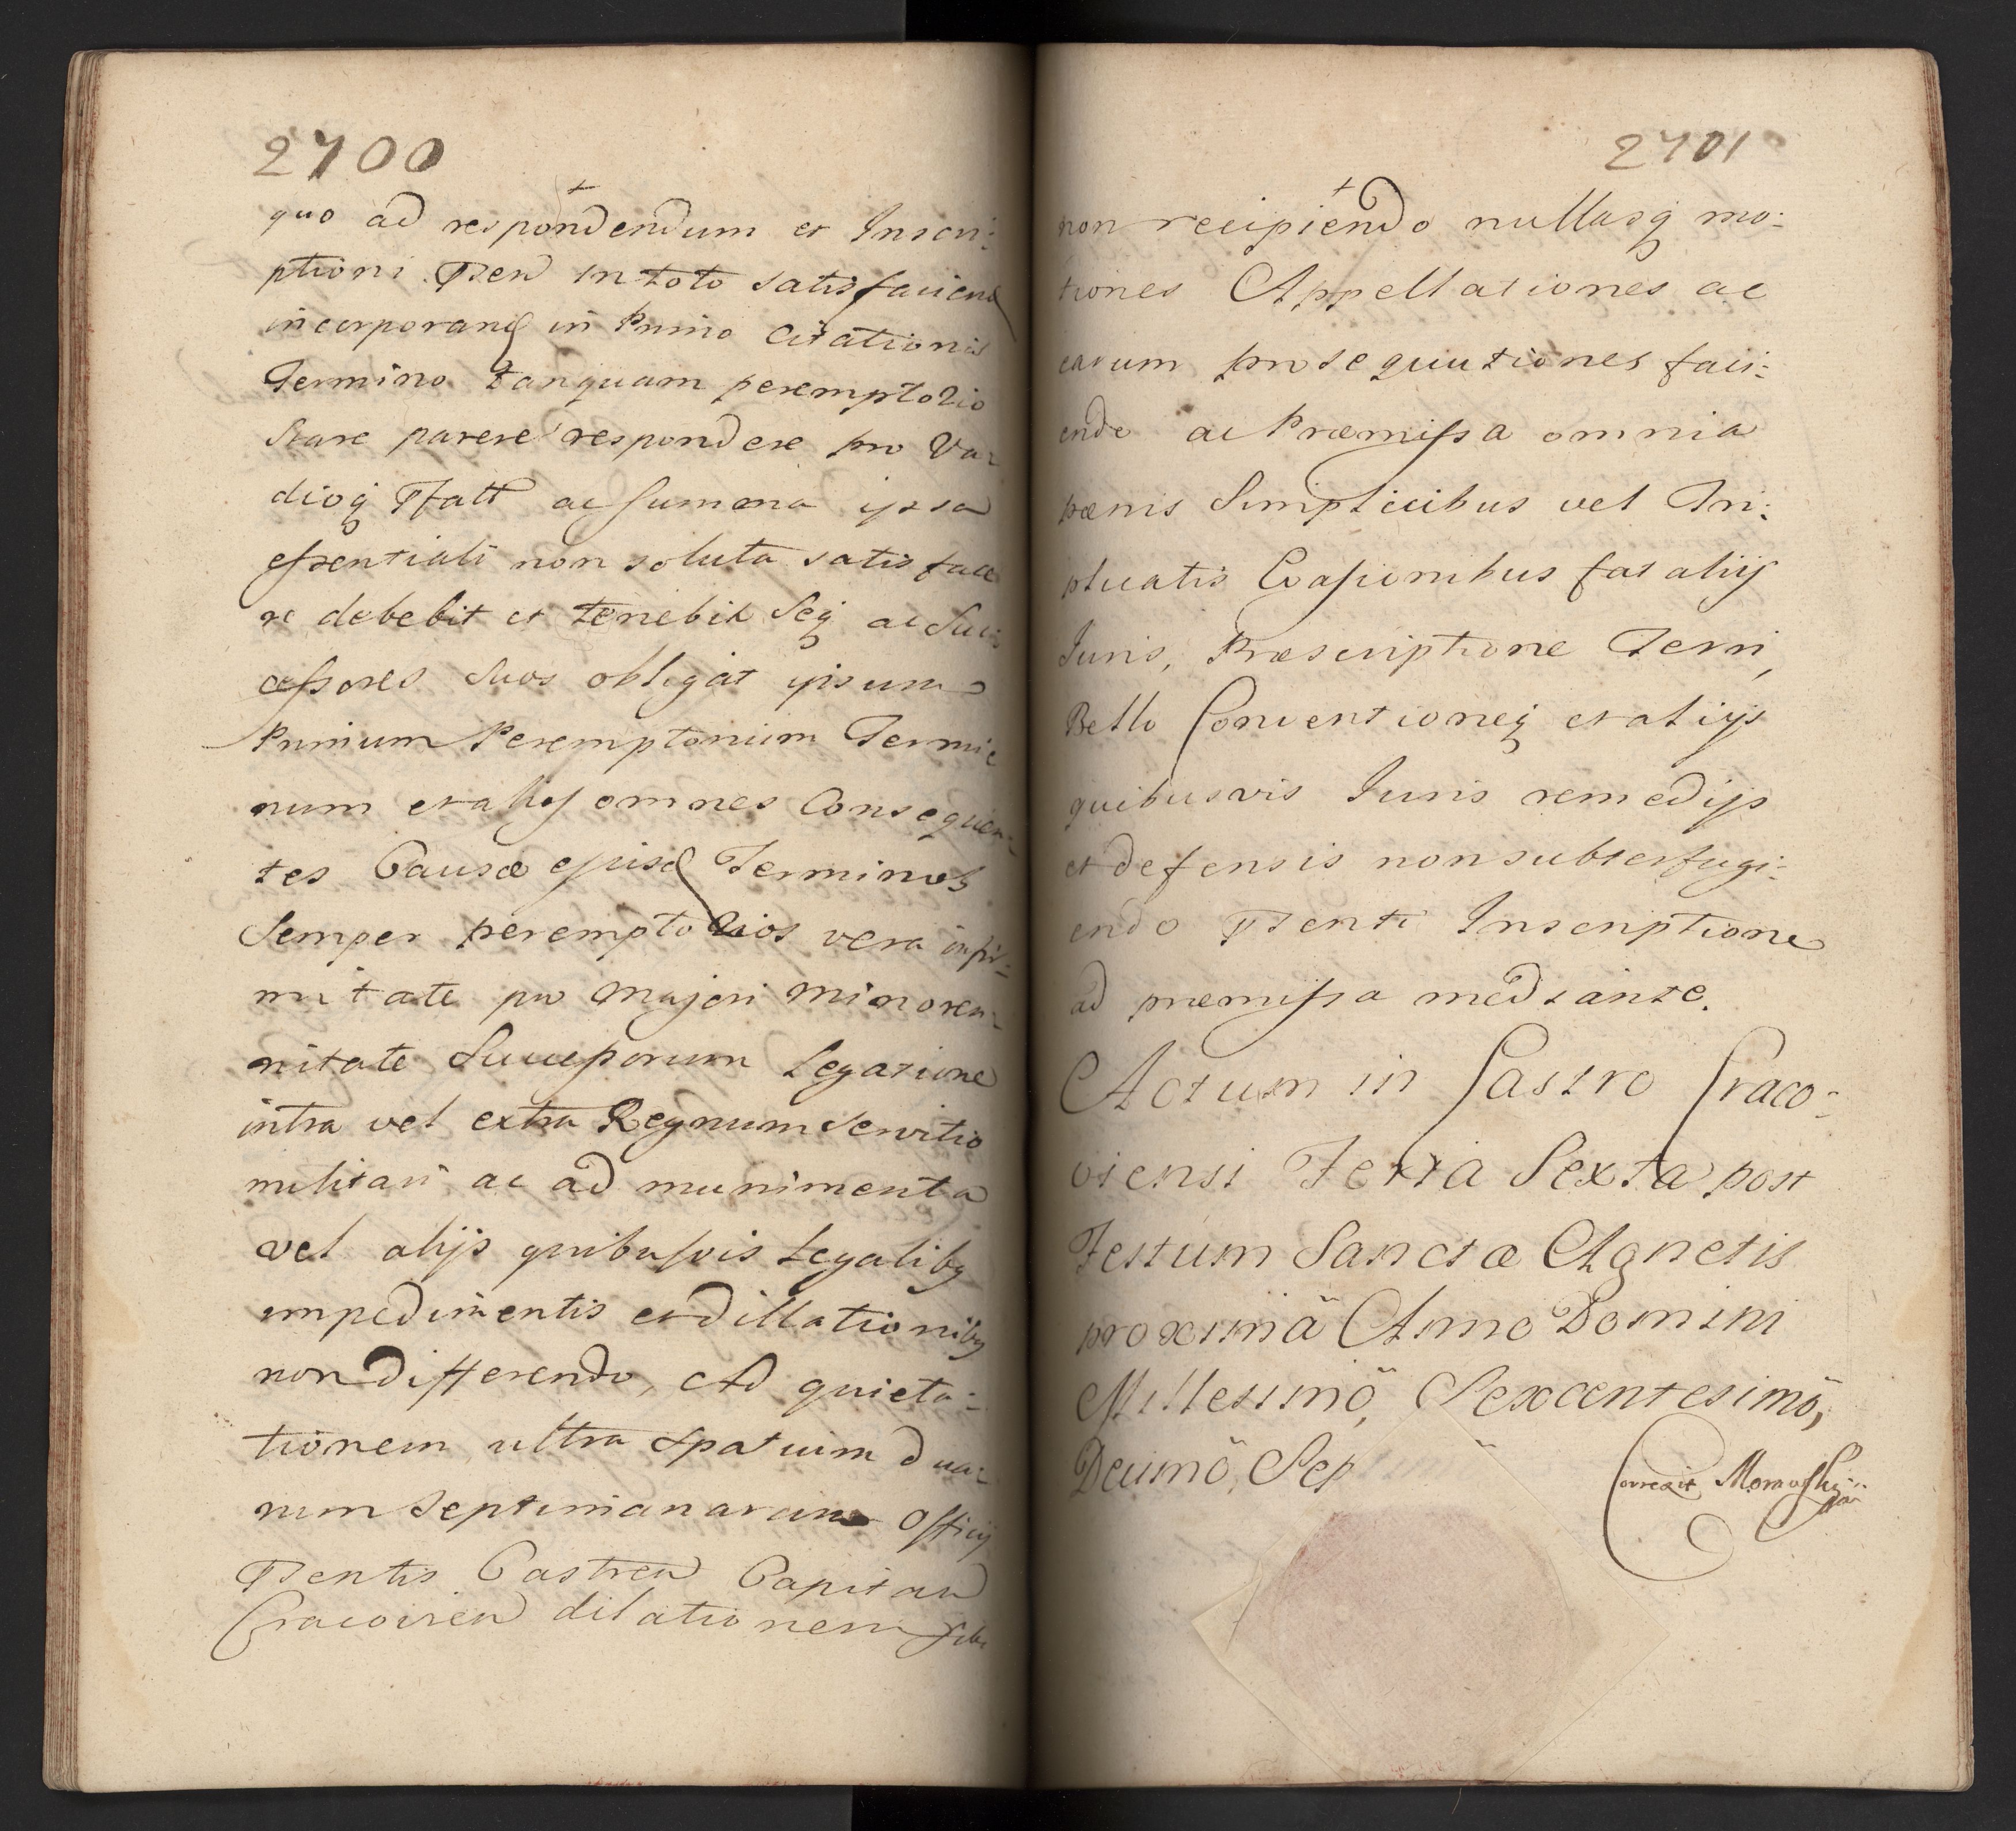 2700
quo ad respondendum et Inscri:
ptioni Psen in toto satisfaciend
incorporand in Primo Citationis
Termino tanquam peremptorio
Stare parere respondere pro Va:
dioq Psatt ac summa ipsa
essentiali non soluta satisface
re debebit et tenebit Seq ac Suc:
cessores Suos obligat ipsum
Primum Peremptorium Termi:
num et alios omnes Consequen:
tes Causæ ejusd Terminos
Semper peremptorios vera infir:
mitate pro majori minoren:
nitate Successorum Legatione
intra vel extra Regnum Servitio
militari ac ad munimenta
vel alijs quibusvis Legalibq
impedimentis et dillationibq
non differendo, Ad quieta:
tionem ultra spatium dua:
rum Septimanarum Officij
Psentis Castren Capitan
Cracovien dilationem sibi
2701
non recipiendo nullasq mo:
tiones Appellationes ac
earum prosequutiones faci:
endo ac Præmissa omnia
pænis Simplicibus vel Tri:
plicatis Evasionibus fatalijs
Iuris, Præscriptione Terri,
Bello Conventioneq et alijs
quibusvis Iuris remedijs
et defensis non subterfugi:
endo Psenti Inscriptione
ad præmissa mediante.
Actum in Castro Craco:
viensi Feria Sexta post
Festum Sanctæ Agnetis
proximä Anno Domini
Millesimö, Sexcentesimö,
Decimö, Sep
Correxit